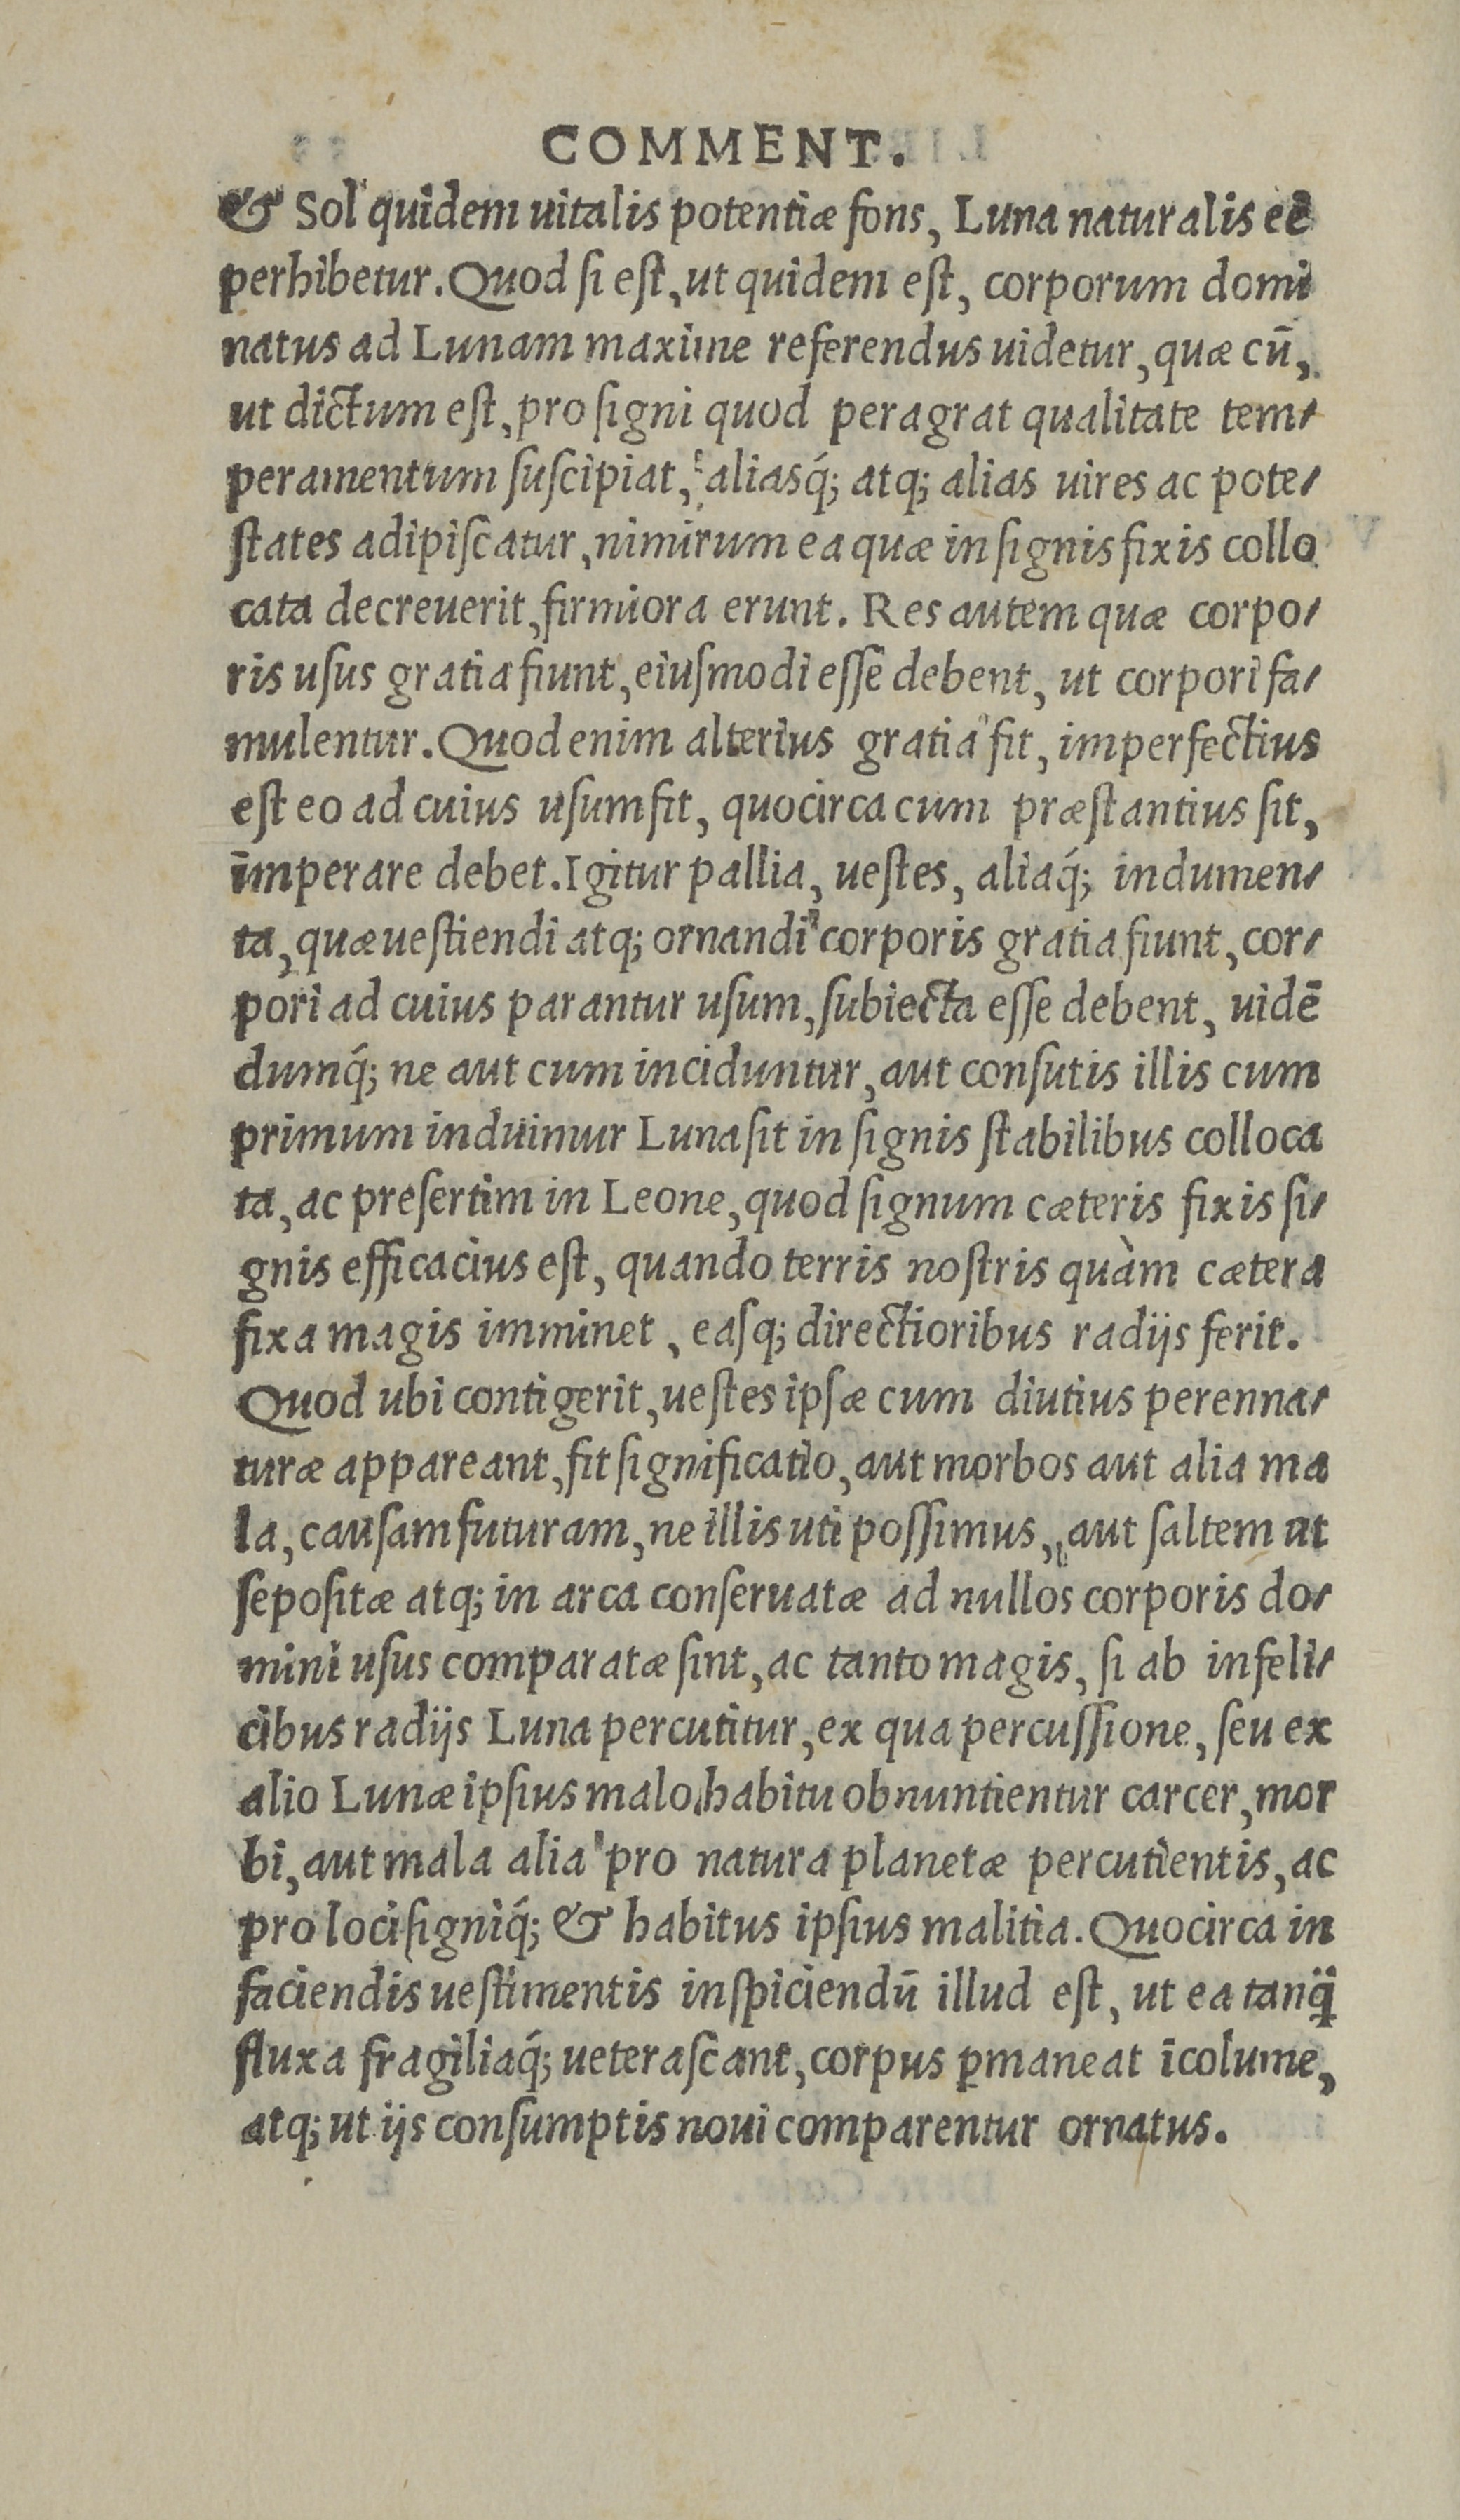 COMMENT.
& Sol quidem uitalis potentiæ fons, Luna naturalis eē
perhibetur. Quod si est, ut quidem est, corporum domi
natus ad Lunam maxime referendus uidetur, quæ cū,
ut dictum est, pro signi quod peragrat qualitate tem-
peramentum suscipiat, aliasq́; atq; alias uires ac pote-
states adipiscatur, nimirum ea quæ in signis fixis collo
cata decreuerit, firmiora erunt. Res autem quæ corpo-
ris usus gratia fiunt, eiusmodi esse debent, ut corpori fa-
mulentur. Quod enim alterius gratia fit, imperfectius
est eo ad cuius usum fit, quocirca cum præstantius sit,
imperare debet. Igitur pallia, uestes, aliaq́; indumen-
ta, quæ uestiendi atq; ornandi corporis gratia fiunt, cor-
pori ad cuius parantur usum, subiecta esse debent, uidē
dumq́; ne aut cum inciduntur, aut consutis illis cum
primum induimur Luna sit in signis stabilibus colloca
ta, ac presertim in Leone, quod signum cæteris fixis si-
gnis efficacius est, quando terris nostris quàm cætera
fixa magis imminet, easq; directioribus radijs ferit.
Quod ubi contigerit, uestes ipsæ cum diutius perenna-
turæ appareant, fit significatio, aut morbos aut alia ma
la, causam futuram, ne illis uti possimus, aut saltem ut
sepositæ atq; in arca conseruatæ ad nullos corporis do-
mini usus comparatæ sint, ac tanto magis, si ab infeli-
cibus radijs Luna percutitur, ex qua percussione, seu ex
alio Lunæ ipsius malo habitu obnuntientur carcer, mor
bi, aut mala alia pro natura planetæ percutientis, ac
pro loci signiq́; & habitus ipsius malitia. Quocirca in
faciendis uestimentis inspiciendū illud est, ut ea tanq̃
fluxa fragiliaq́; ueterascant, corpus ꝑmaneat īcolume,
atq; ut ijs consumptis noui comparentur ornatus.